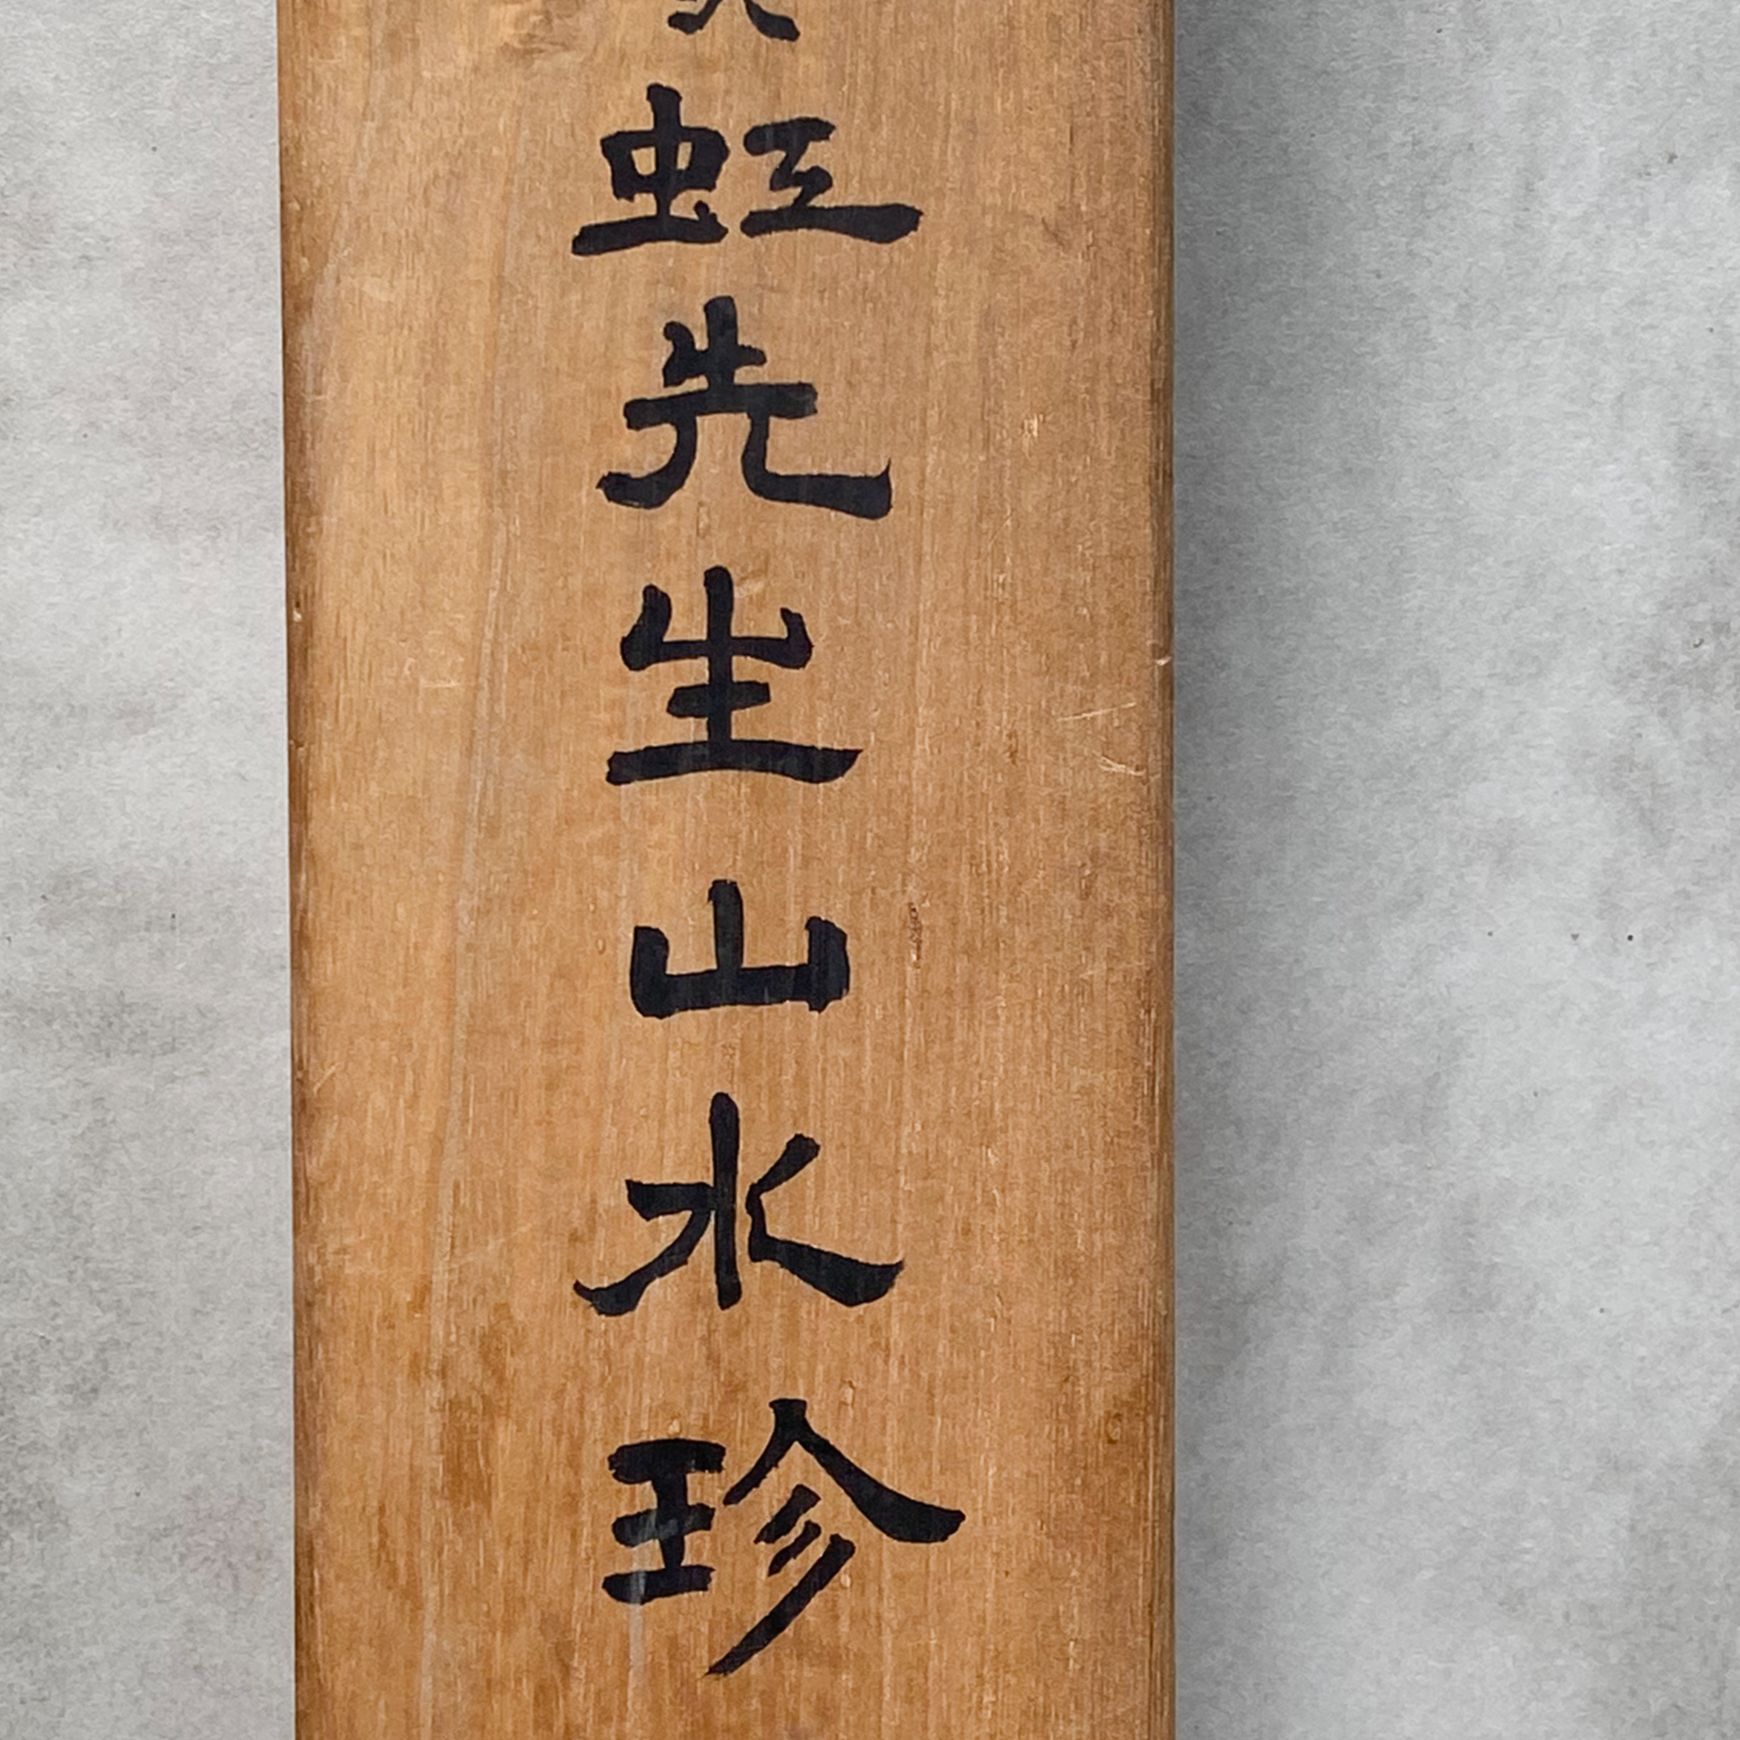 虹先生山水珍